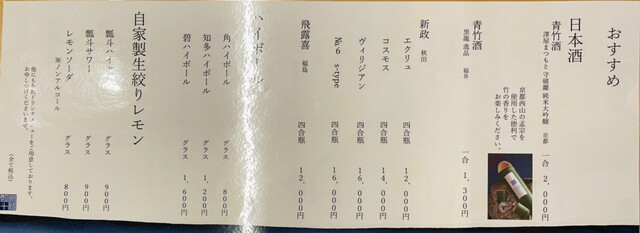 おすすめ
日本酒
青竹酒
澤屋まつもと 守破離 純米大吟醸 京都 一合 2,000円
京都西山の孟宗を
使用した徳利で
竹の香りを
お楽しみください。
青竹酒
黒龍 逸品 福井 一合 1,300円
新政 秋田
エクリュ 四合瓶 12,000円
コスモス 四合瓶 14,000円
ヴィリジアン 四合瓶 16,000円
No.6 s-type 四合瓶 16,000円
飛露喜 福島 四合瓶 12,000円
ハイボール
角ハイボール グラス 800円
知多ハイボール グラス 1,200円
碧ハイボール グラス 1,600円
自家製生絞りレモン
瓢斗ハイ グラス 900円
瓢斗サワー グラス 900円
レモンソーダ グラス 800円
※ノンアルコール
他にもドリンクメニューをご用意しております。
お申しつけくださいませ。
(全て税込)